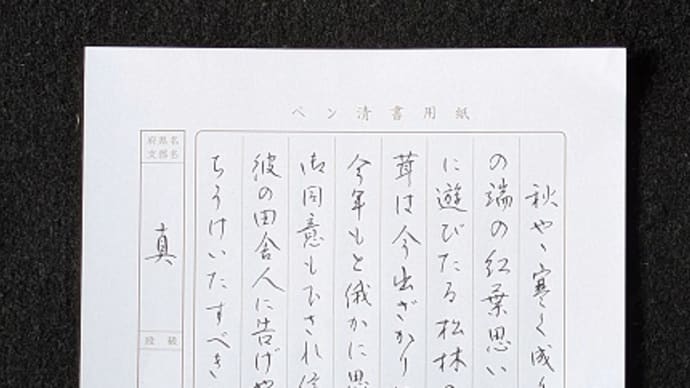 ペン清書用紙
秋やゝ寒く成
の端の紅葉思い
に遊びたる松林の
茸は今出ざかり
今年もと俄かに思
御同意も下され
彼の田舎人に告げ
もうけいたすべき
府県名
支部名
真
段級